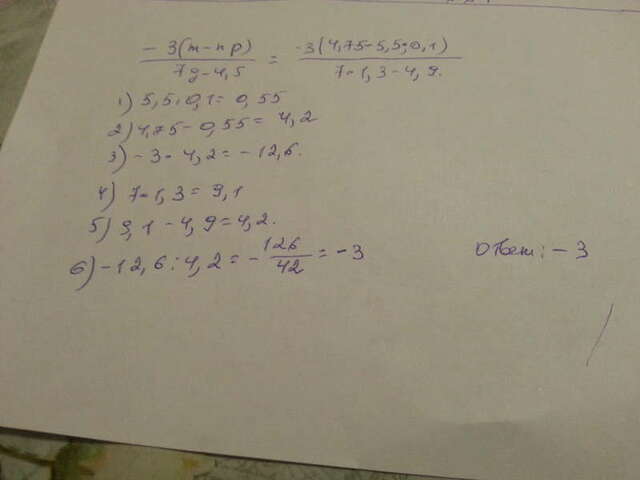 - 3(m-np) / 7g-4,5 = -3(4,75-5,5·0,1) / 7·1,3-4,9.
1) 5,5·0,1=0,55
2) 4,75-0,55=4,2
3) -3·4,2=-12,6.
4) 7·1,3=9,1
5) 9,1-4,9=4,2.
6) -12,6:4,2=-126/42=-3
Ответ: -3